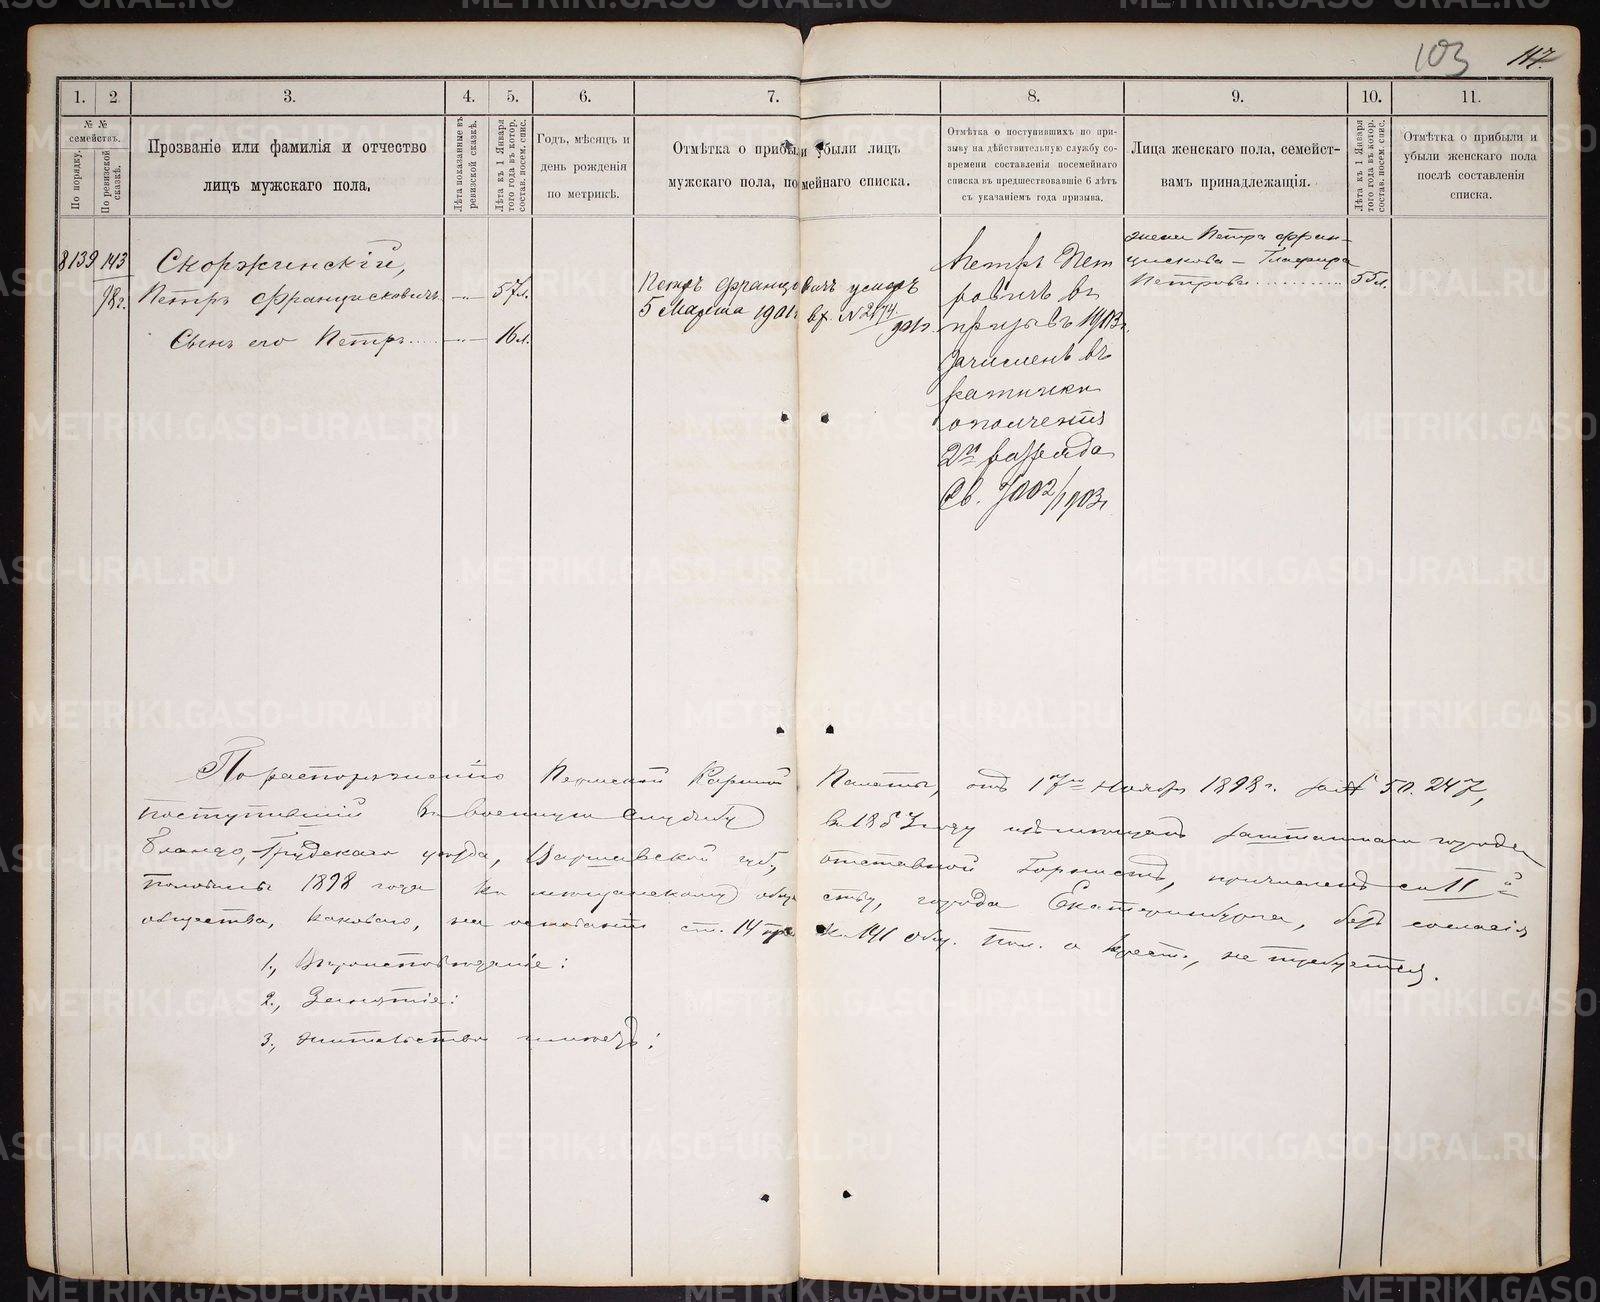 103
117.
1.
2
3.
4.
5.
6.
7.
8.
9.
10.
11.
№ №
семействъ.
По порядку.
По ревизской
сказкѣ.
Прозваніе или фамилія и отчество
лицъ мужскаго пола.
Лѣта показанные въ
ревизской сказкѣ.
Лѣта къ 1 Января
того года въ котор.
состав. посем. спис.
Годъ, мѣсяцъ и
день рожденія
по метрикѣ.
Отмѣтка о прибыли убыли лицъ
мужскаго пола, по мейнаго списка.
Отмѣтка о поступившихъ по при-
зыву на дѣйствительную службу со-
времени составленія посемейнаго
списка въ предшествовавшіе 6 лѣтъ
съ указаніемъ года призыва.
Лица женскаго пола, семейст-
вамъ принадлежащія.
Лѣта къ 1 Января
того года въ котор.
состав. посем. спис.
Отмѣтка о прибыли и
убыли женскаго пола
послѣ составленія
списка.
8139 143
98 г.
Скоржинскій,
Петръ Францисковичъ 57 л.
Сынъ его Петръ 16 л.
Петръ Францисковичъ умеръ
5 Марта 1901 г. вх. № 2174 901 г.
Петръ Пет
ровичъ въ
призывъ 1903 г.
зачисленъ въ
ратники
ополченія
2го разряда
Св. 7002/1903 г.
жена Петра Фран-
цискова – Глафира
Петрова 55 л.
По распоряженію Пермской Казенной Палаты, отъ 17го Ноября 1898 г. за № 50.247,
поступившій въ военную службу въ 1863 году изъ мѣщанъ заштатнаго города
уѣзда, Варшавской губ, отставной Горнистъ, причисленъ со IIй
половины 1898 года къ мѣщанскому обществу, города Екатеринбурга, безъ согласія
общества, каковаго, на основаніи ст. 14 141 общ. пол. о крест., не требуется.
1., Вѣроисповѣданіе:
2., Занятіе:
3., жительство имѣетъ: